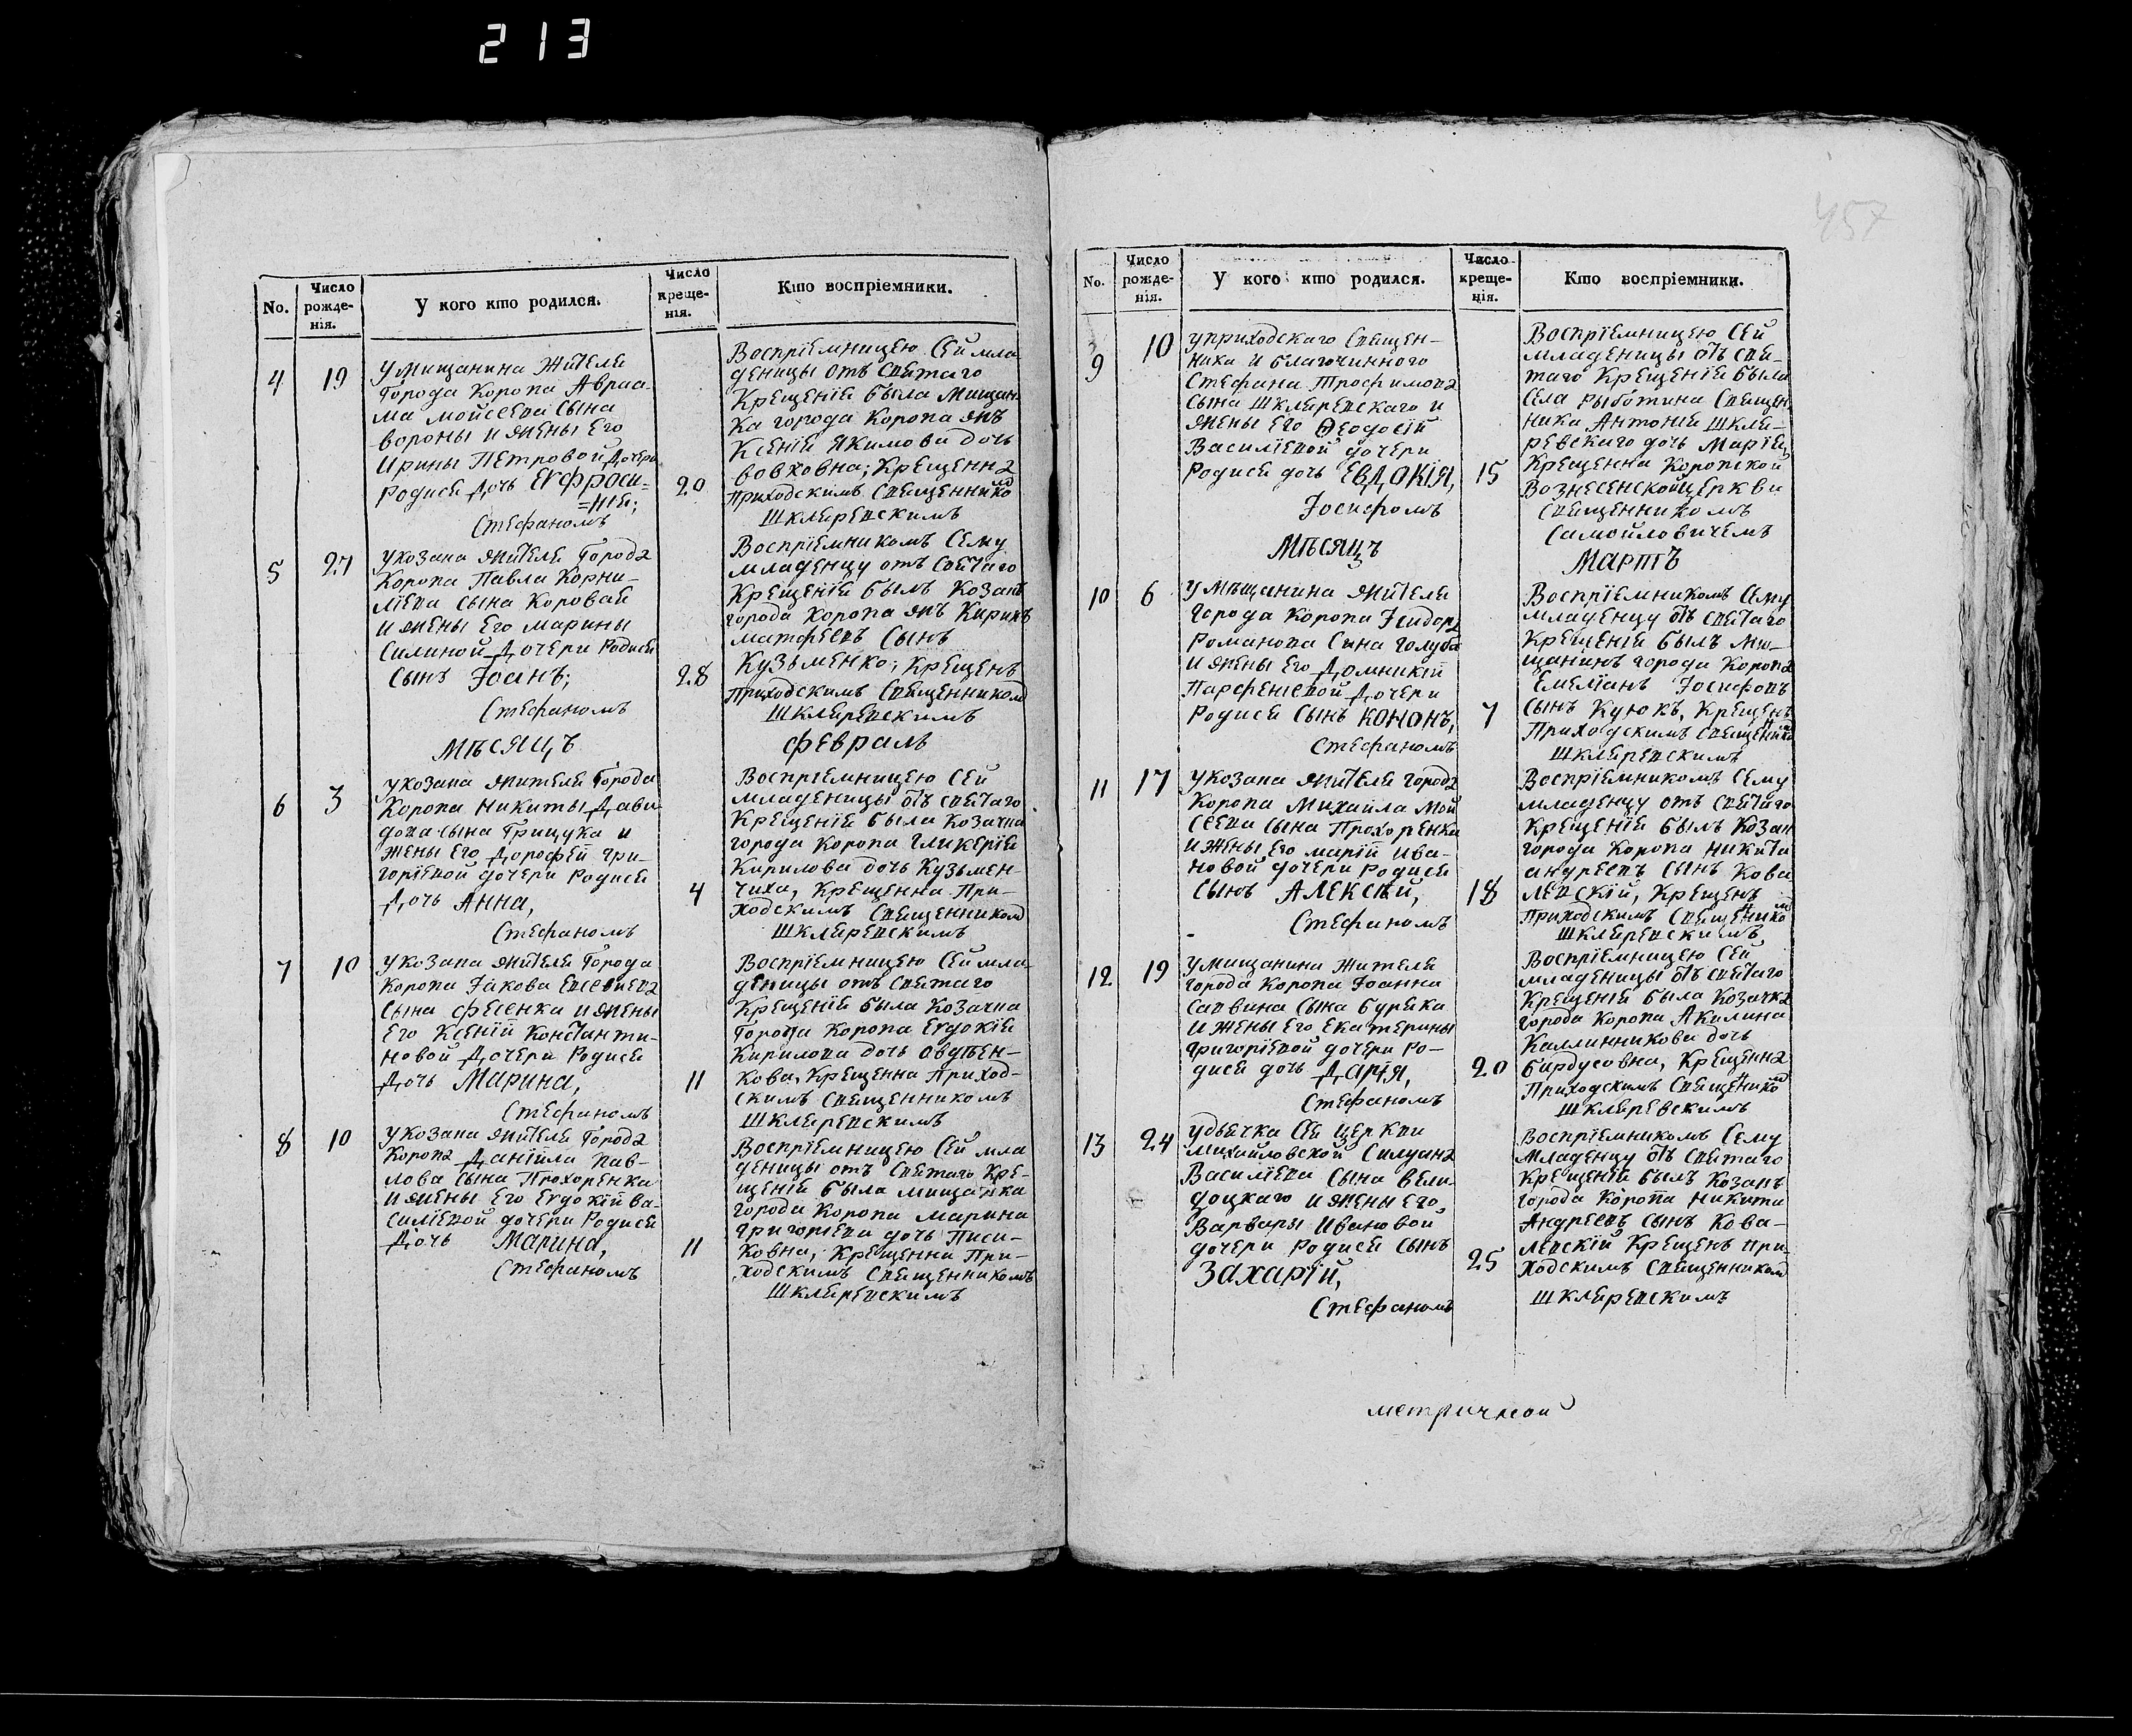 213
No.
Число рожденія.
У кого кто родился.
Число крещенія.
Кто воспріемники.
4
19
У мищанина Жителя
города Коропа Авраа-
ма мойсеева сына
вороны и жены Его
Ирины Петровой Дочери
родися дочь Евфроси=
=нія;
Стефаномъ
20
Воспріемницею Сей мла-
деницы отъ Святаго
Крещенія была Мищан
ка города Коропа
Ксенія Якимова дочь
вовховна; Крещенна
Приходскимъ Священником
Шкляревскимъ
5
27
У козака жителя города
Коропа Павла Корни-
ліева сына Коровая
и жены Его марины
Силиной Дочери Родися
сынъ Іоанъ;
Стефаномъ
28
Воспріемникомъ Сему
младенцу отъ Святаго
Крещенія былъ Козакъ
города Коропа Кирикъ
матфеевъ Сынъ
Кузьменко; Крещенъ
Приходскимъ Священником
Шкляревскимъ
Мѣсяцъ
февраль
6
3
У козака жителя города
Коропа Никиты Дави
дова сына Грицука и
жены Его Дорофей Гри-
горіевой дочери Родися
Дочь Анна,
Стефаномъ
4
Воспріемницею Сей
младеницы отъ святаго
Крещенія была Козачка
города Коропа Гликерія
Кирилова дочь Кузьмен-
чиха, Крещенна При-
ходскимъ Священником
Шкляревскимъ
7
10
У козака жителя города
Коропа Іакова Евсевіева
Сына Фесенка и жены
Его Ксеній Константи-
новой Дочери Родися
Дочь Марина,
Стефаномъ
11
Воспріемницею Сей мла-
деницы отъ Святаго
Крещенія была Козачка
города Коропа Евдокія
Кирилова дочь Овдѣен-
кова, Крещенна Приход-
скимъ Священникомъ
Шкляревскимъ
8
10
У козака жителя города
Коропа Даніила Пав-
лова сына Прохоренка
и жены Его Евдокій Ва-
силіевой дочери Родися
Дочь Марина,
Стефаномъ
11
Воспріемницею Сей мла
деницы отъ Святаго Кре-
щенія была мищанка
города Коропа Марина
Григоріева дочь Писи-
ковна, Крещенна При-
ходскимъ Священникомъ
Шкляревскимъ
457
No.
Число рожденія.
У кого кто родился.
Число крещенія.
Кто воспріемники.
9
10
у приходскаго Священ-
ника и благочинного
Стефана Трофимова
сына Шкляревскаго и
жены Его Ѳеодосій
Василіевой дочери
Родися дочь ЕВДОКІЯ,
Іосифомъ
15
Воспріемницею Сей
младеницы отъ свя-
таго Крещенія была
Села рыботина Священ
ника Антонія Шкля-
ревскаго дочь Марія,
Крещенна Коропской
Вознесенской церкви
Священникомъ
Самойловичемъ
Мѣсяцъ
Мартъ
10
6
У мѣщанина жителя
города Коропа Ісидора
Романова Сина голуба
и жены Его Домникій
Парфеніевой Дочери
Родися Сынъ КОНОНЪ,
Стефаномъ
7
Воспріемникомъ Сему
младенцу отъ святаго
Крещенія былъ Ми-
щанинъ города Коропа
Емеліанъ Іосифовъ
сынъ Куюкъ, Крещенъ
Приходскимъ священником
Шкляревскимъ
11
17
У козака жителя города
Коропа Михаила Мой
сеева сына Прохоренка
и жены Его марій Ива-
новой дочери Родися
сынъ АЛЕКСѢЙ,
Стефаномъ
18
Воспріемникомъ Сему
младенцу отъ святаго
Крещенія былъ Козак
города Коропа Никита
андреевъ сынъ Кова
левскій, Крещенъ
Приходскимъ Священником
Шкляревскимъ
12
19
У мищанина Жителя
города Коропа Іоанна
Саввина сына буряка
и жены Его Екатерины
Григоріевой дочери Ро-
дися дочь ДАРІЯ,
Стефаномъ
20
Воспріемницею Сей
младеницы отъ святаго
Крещенія была Козачка
города Коропа Акилина
Каллинникова дочь
бирдусовна, Крещенна
Приходскимъ Священником
Шкляревскимъ
13
24
У дьячка Сея церкви
михайловской Силуана
Василіева сына вели
доцкаго и жены Его,
Варвары Ивановой
дочери Родися Сынъ
ЗАХАРІЙ,
Стефаномъ
25
Воспріемникомъ Сему
младенцу отъ святаго
Крещенія былъ Козакъ
города Коропа Никита
Андреевъ сынъ Кова-
левскій Крещенъ При-
ходскимъ Священником
Шкляревскимъ
метричной